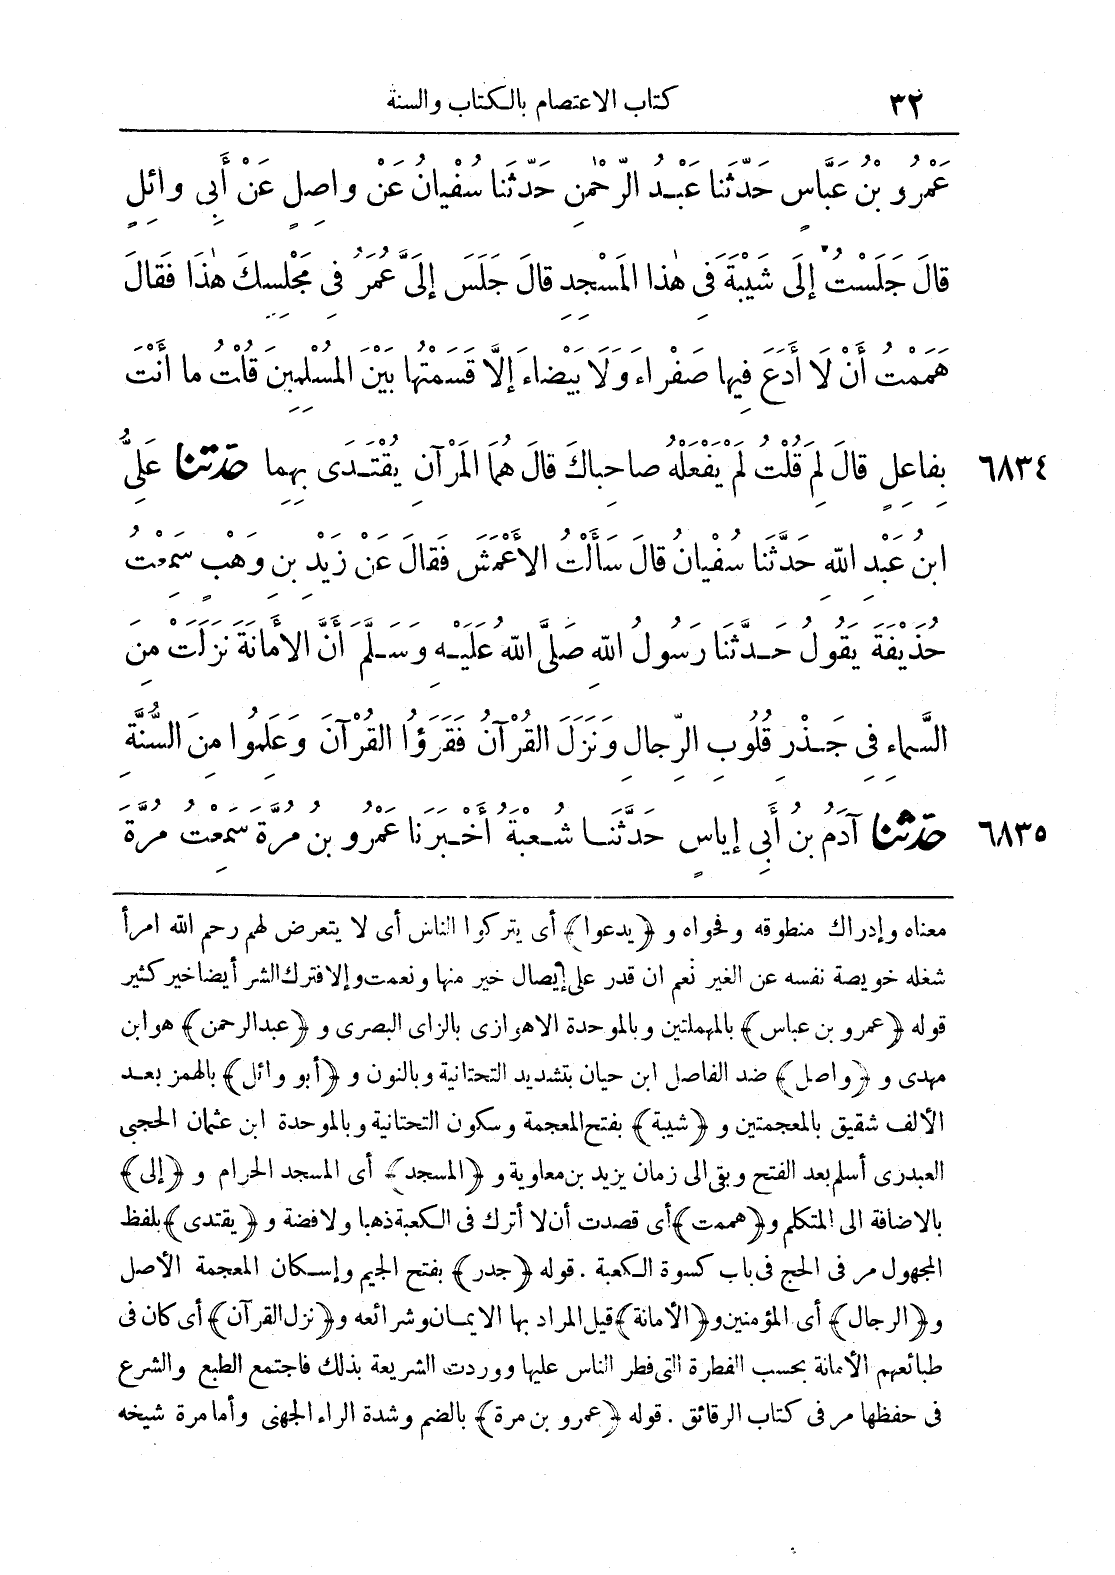 ٣٢ كتاب الاعتصام بالكتاب والسنة
عَمْرُو بْنُ عَبَّاسٍ حَدَّثَنا عَبْدُ الرَّحْمٰنِ حَدَّثَنا سُفْيانُ عَنْ واصِلٍ عَنْ أَبِى وائِلٍ
قالَ جَلَسْتُ إلَى شَيْبَةَ فِى هٰذا المَسْجِدِ قالَ جَلَسَ إلَىَّ عُمَرُ فِى مَجْلِسِكَ هٰذا فَقالَ
هَمَمْتُ أَنْ لَا أَدَعَ فِيها صَفْراءَ وَلَا بَيْضاءَ إلَّا قَسَمْتُها بَيْنَ المُسْلِمِينَ قُلْتُ ما أَنْتَ
بِفاعِلٍ قالَ لِمَ قُلْتُ لَمْ يَفْعَلْهُ صاحِباكَ قالَ هُما المَرْآنِ يُقْتَدَى بِهِما حَدَّثَنا عَلِىُّ ٦٨٣٤
ابنُ عَبْدِ اللهِ حَدَّثَنا سُفْيانُ قالَ سَأَلْتُ الأَعْمَشَ فَقالَ عَنْ زَيْدِ بنِ وَهْبٍ سَمِعْتُ
حُذَيْفَةَ يَقُولُ حَدَّثَنا رَسُولُ اللهِ صَلَّى اللهُ عَلَيْهِ وَسَلَّمَ أَنَّ الأَمانَةَ نَزَلَتْ مِنَ
السَّماءِ فِى جَذْرِ قُلُوبِ الرِّجالِ وَنَزَلَ القُرْآنُ فَقَرَؤُا القُرْآنَ وَعَلِمُوا مِنَ السُّنَّةِ
حَدَّثَنا آدَمُ بنُ أَبِى إياسٍ حَدَّثَنا شُعْبَةُ أَخْبَرَنا عَمْرُو بنُ مُرَّةَ سَمِعْتُ مُرَّةَ ٦٨٣٥
معناه وإدراك منطوقه وفحواه و ﴿يدعوا﴾ أى يتركوا الناس أى لا يتعرض لهم رحم الله امرأ
شغله خويصة نفسه عن الغير نعم ان قدر على إيصال خير منها ونعمت وإلا فترك الشر أيضا خير كثير
قوله ﴿عمرو بن عباس﴾ بالمهملتين وبالموحدة الاهوازى بالزاى البصرى و ﴿عبد الرحمن﴾ هو ابن
مهدى و ﴿واصل﴾ ضد الفاصل ابن حيان بتشديد التحتانية وبالنون و ﴿أبو وائل﴾ بالهمز بعد
الألف شقيق بالمعجمتين و ﴿شيبة﴾ بفتح المعجمة وسكون التحتانية وبالموحدة ابن عثمان الحجبى
العبدرى أسلم بعد الفتح وبقى الى زمان يزيد بن معاوية و ﴿المسجد﴾ أى المسجد الحرام و ﴿إلى﴾
بالاضافة الى المتكلم و﴿هممت﴾ أى قصدت أن لا أترك فى الكعبة ذهبا ولا فضة و ﴿يقتدى﴾ بلفظ
المجهول مر فى الحج فى باب كسوة الكعبة . قوله ﴿جدر﴾ بفتح الجيم وإسكان المعجمة الأصل
و﴿الرجال﴾ أى المؤمنين و﴿الأمانة﴾ قيل المراد بها الايمان وشرائعه و﴿نزل القرآن﴾ أى كان فى
طبائعهم الأمانة بحسب الفطرة التى فطر الناس عليها ووردت الشريعة بذلك فاجتمع الطبع والشرع
فى حفظها مر فى كتاب الرقائق . قوله ﴿عمرو بن مرة﴾ بالضم وشدة الراء الجهنى وأما مرة شيخه